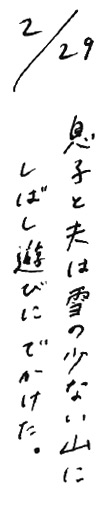 2/29
息子と夫は雪の少ない山に
しばし遊びにでかけた。